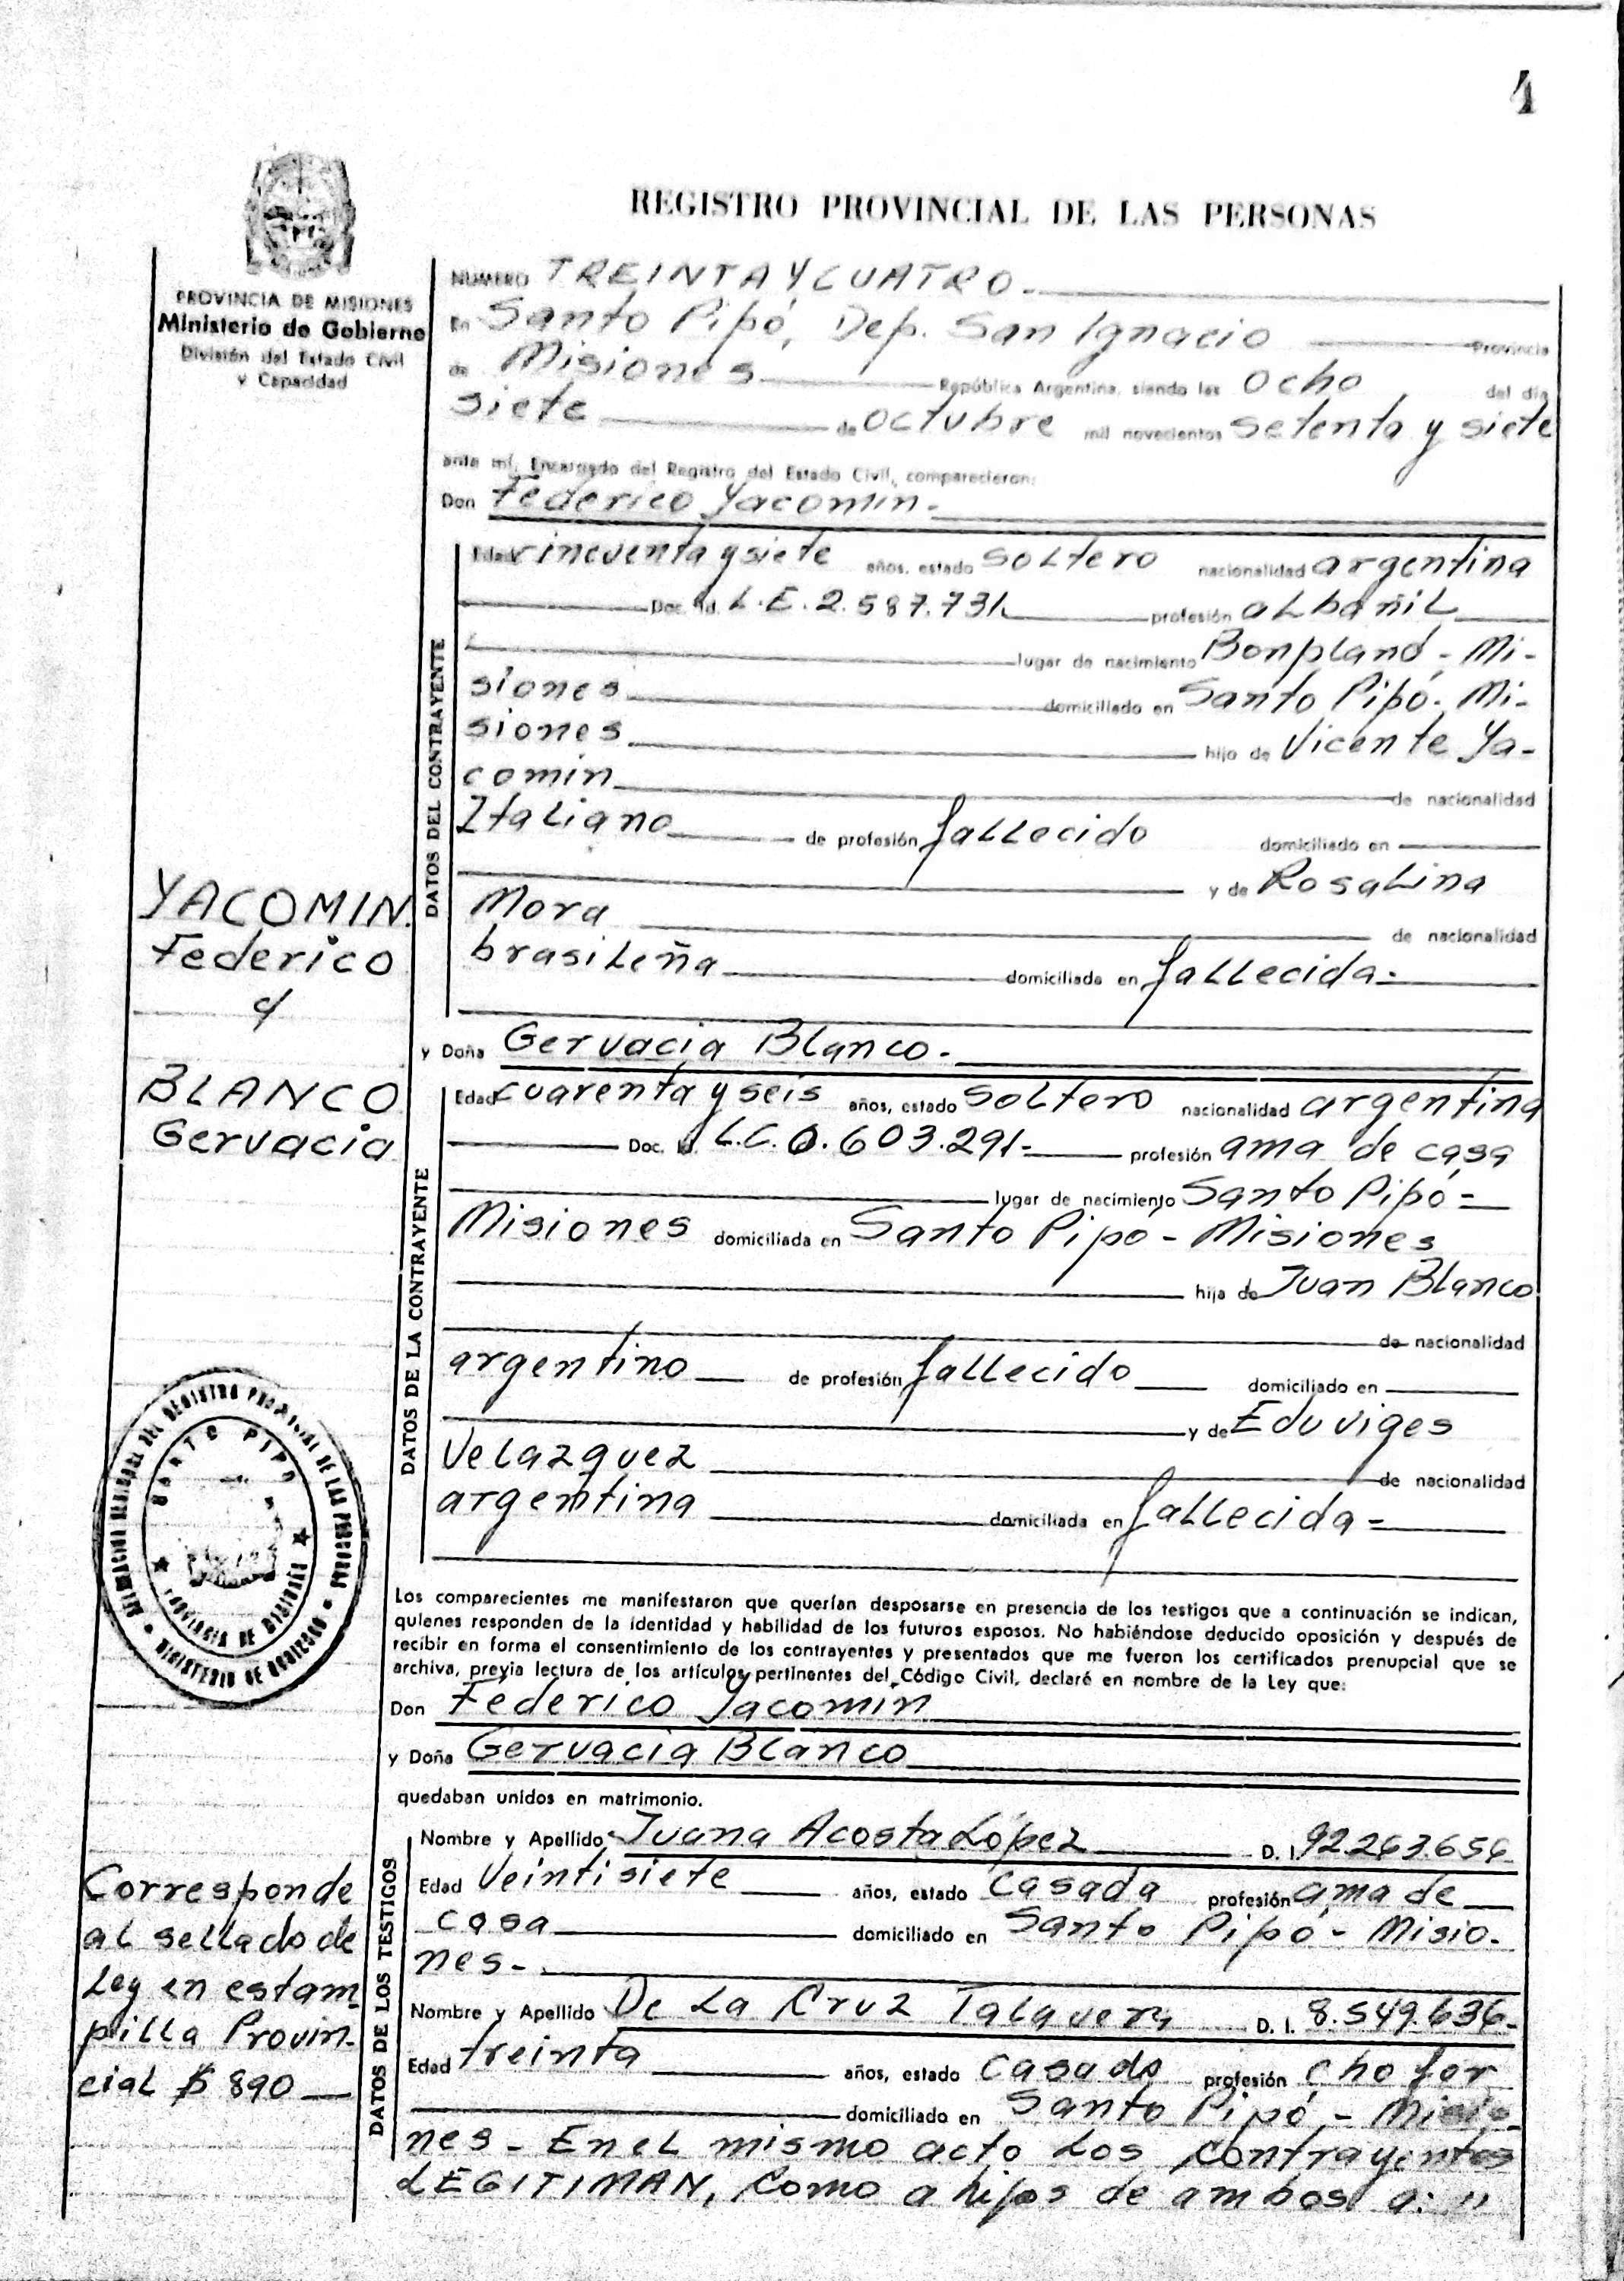 4
REGISTRO PROVINCIAL DE LAS PERSONAS
PROVINCIA DE MISIONES
Ministerio de Gobierno
División del Estado Civil
y Capacidad
NUMERO TREINTA Y CUATRO.
En Santo Pipó, Dep. San Ignacio Provincia
de Misiones República Argentina, siendo las Ocho del día
siete de octubre mil novecientos setenta y siete
ante mí, Encargado del Registro del Estado Civil, comparecieron:
Don Federico Yacomin.
DATOS DEL CONTRAYENTE
Edad cincuenta y siete años, estado soltero nacionalidad argentina
Doc. Id. L.E. 2.587.731 profesión albañil
lugar de nacimiento Bonpland - Mi-
siones domiciliado en Santo Pipó - Mi-
siones hijo de Vicente Ya-
comin de nacionalidad
Italiano de profesión fallecido domiciliado en
y de Rosalina
Mora de nacionalidad
brasileña domiciliada en fallecida.
YACOMIN.
Federico
c/
BLANCO
Gervacia
y Doña Gervacia Blanco.
DATOS DE LA CONTRAYENTE
Edad cuarenta y seis años, estado soltero nacionalidad argentina
Doc. Id. L.C. 0.603.291- profesión ama de casa
lugar de nacimiento Santo Pipó -
Misiones domiciliada en Santo Pipó - Misiones
hija de Juan Blanco
de nacionalidad
argentino de profesión fallecido domiciliado en
y de Eduviges
Velazquez de nacionalidad
argentina domiciliada en fallecida -
DEL REGISTRO PROVINCIAL DE LAS PERSONAS
MINISTERIO DE GOBIERNO
SANTO PIPO
PROVINCIA DE MISIONES
Los comparecientes me manifestaron que querían desposarse en presencia de los testigos que a continuación se indican,
quienes responden de la identidad y habilidad de los futuros esposos. No habiéndose deducido oposición y después de
recibir en forma el consentimiento de los contrayentes y presentados que me fueron los certificados prenupcial que se
archiva, previa lectura de los artículos pertinentes del Código Civil, declaré en nombre de la Ley que:
Don Federico Yacomin
y Doña Gervacia Blanco
quedaban unidos en matrimonio.
DATOS DE LOS TESTIGOS
Nombre y Apellido Juana Acosta López D. I. 92.263.656
Edad Veintisiete años, estado casada profesión ama de
casa domiciliado en Santo Pipó - Misio-
nes-.
Nombre y Apellido De La Cruz Talavera D. I. 8.549.636-
Edad treinta años, estado casado profesión chofer
domiciliado en Santo Pipó - Misio-
nes - En el mismo acto los contrayentes
LEGITIMAN, Como a hijos de ambos a: "
Corresponde
al sellado de
Ley en estam-
pilla Provin-
cial $ 890